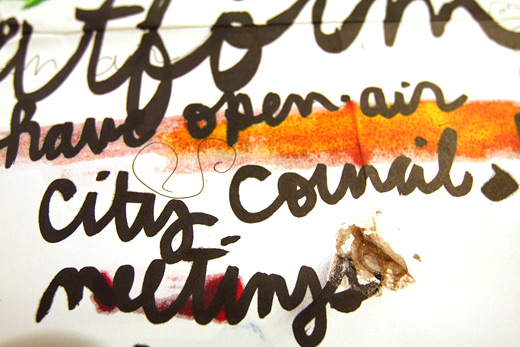 have open-air
City Council
meetings